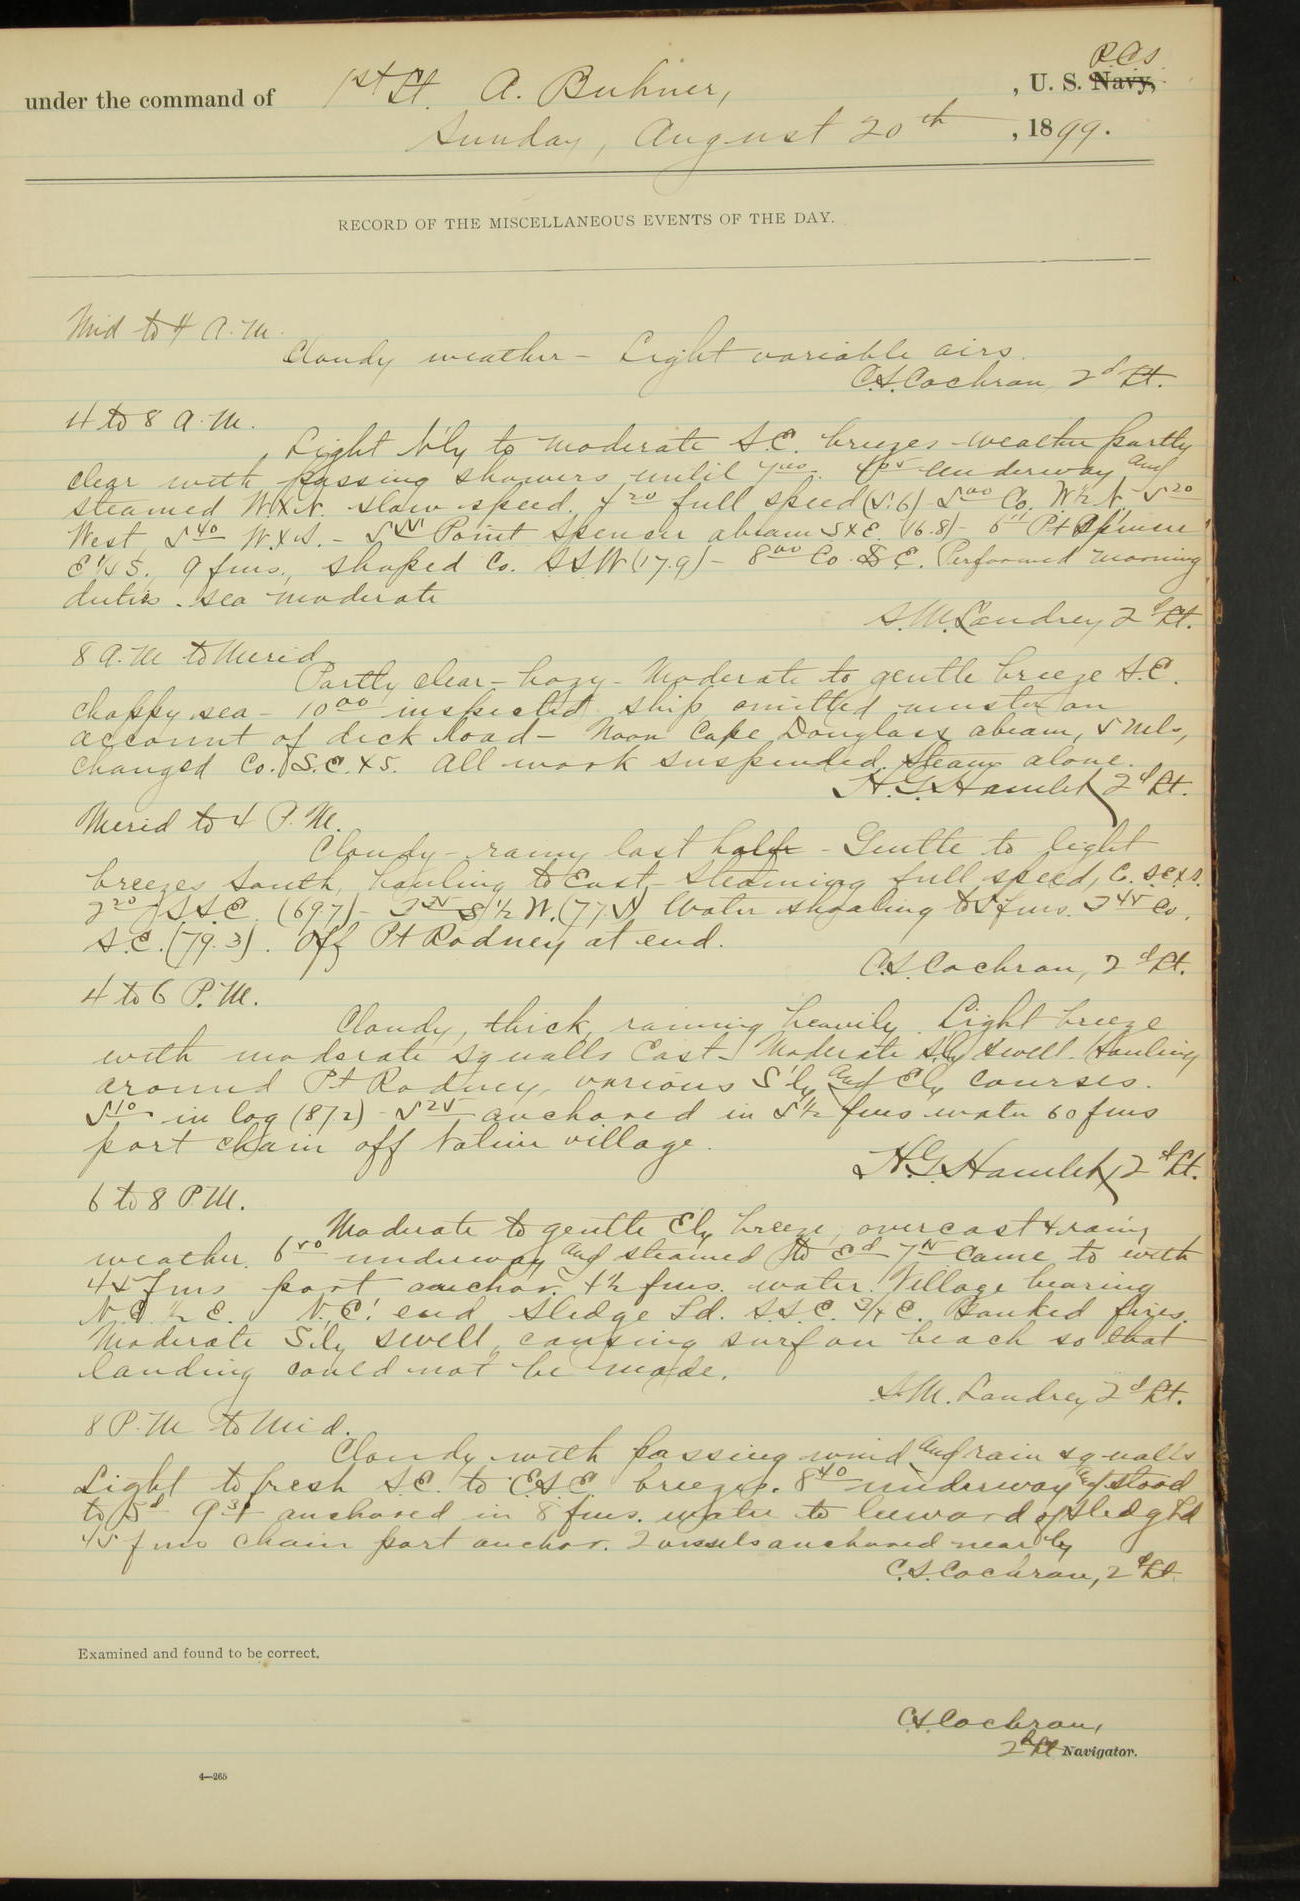 R.C.S.
under the command of 1st Lt. A. Buhner, , U. S. Navy,
Sunday, August 20th , 1899.
RECORD OF THE MISCELLANEOUS EVENTS OF THE DAY.
Mid to 4 A. M.
Cloudy weather - Light variable airs.
C.S. Cochran, 2d Lt.
4 to 8 A. M.
Light N'ly to moderate S.E. breezes - weather partly
clear with passing showers until 4 underway and
steamed WxN. slow speed. 4 20 full speed (5.6) - 5 00 Co. W 1/2 N. 5 20
West, 5 40 WxS. - Point Spencer abeam SxE. (6.8) - 6 Pt Spencer
E 1/4 S., 9 fms., shaped Co. SSW (17.9) - 8 00 Co. S E. Performed morning
duties. Sea moderate
S. M. Landrey 2d Lt.
8 A. M to Merid
Partly clear - hazy - Moderate to gentle breeze S.E.
choppy sea - 10 00 inspected ship omitted muster on
account of deck load - Noon Cape Douglass abeam, 5 mls,
changed Co. S.E.xS. All work suspended. Steam alone.
H. G. Hamlet 2d Lt.
Merid to 4 P. M.
Cloudy - rainy last half - Gentle to light
breezes South, hauling to East - Steaming full speed, C. S.E.xS.
2 20 S.S.E. (69.7) - S 1/2 W. (77.5) Water shoaling to 5 fms. 3 45 Co.
S.E. (79.3). Off Pt Rodney at end.
C.S. Cochran, 2d Lt.
4 to 6 P. M.
Cloudy, thick, raining heavily. Light breeze
with moderate squalls East - Moderate S'ly swell. Hauling
around Pt Rodney, various S'ly and E'ly courses.
5 10 in log (87.2) - 5 25 anchored in 5 1/2 fms water 60 fms
port chain off Native village.
H. G. Hamlet, 2d Lt.
6 to 8 P. M.
Moderate to gentle E'ly breeze, overcast & rainy
weather. 6 50 underway and steamed to Ed 7 came to with
45 fms port anchor. 4 1/2 fms. water. Village bearing
N.E. 1/2 E. N.E. end Sledge Id. S.S.E. 3/4 E. Banked fires.
Moderate S'ly swell, causing surf on beach so that
landing could not be made.
S. M. Landrey 2d Lt.
8 P. M to Mid.
Cloudy with passing wind and rain squalls
Light to fresh S.E to E.S.E. breezes. 8 40 underway & stood
to Sd anchored in 8 fms. water to leeward of Sledge Id
45 fms chain port anchor. 2 vessels anchored nearby
C.S. Cochran, 2d Lt.
Examined and found to be correct.
C.S. Cochran,
2d Lt Navigator.
4—265